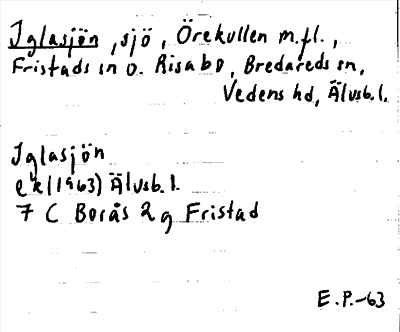 Iglasjön, sjö, Örekullen m.fl.,
Fristads sn o. Risabo, Bredareds sn,
Vedens hd, Älvsb. l.
Iglasjön
ek (1963) Älvsb. l.
7 C Borås 2 g Fristad
E.P.-63